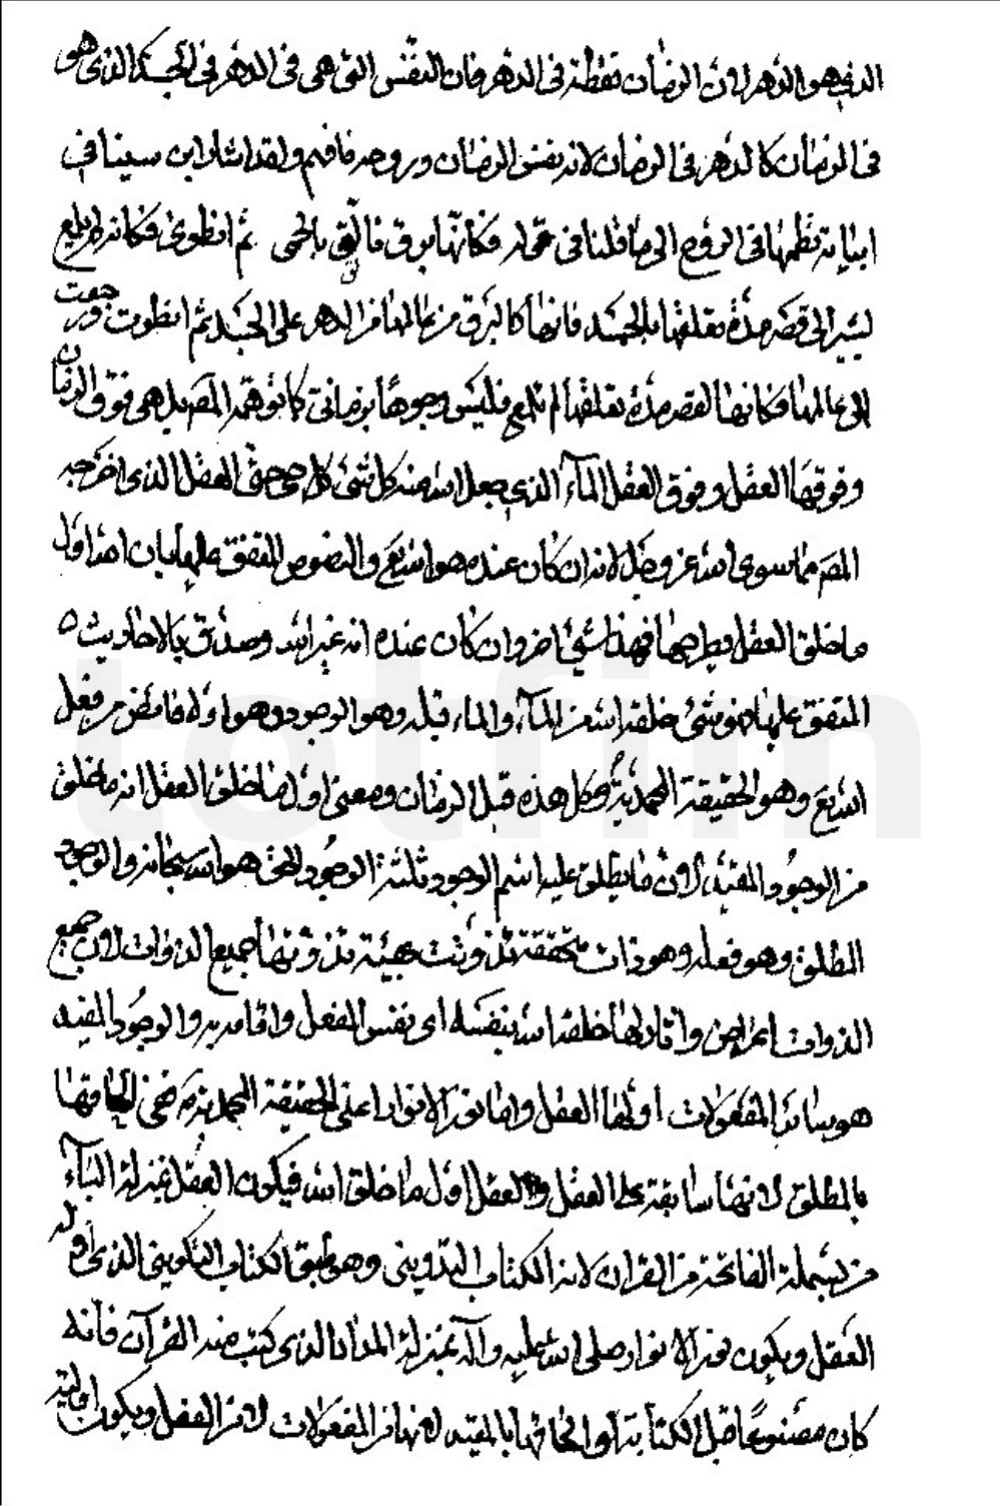 الذي هو الدهر لان الزمان نقطة في الدهر فان النفس التي هي في الدهر في الجسد الذي هو
في الزمان كالدهر في الزمان لانه نفس الزمان وروحه فافهم ولقد اشار ابن سينا في
ابياته نظمها في الروح الى ما قلنا في قوله فكانها برق تالق بالحمى ثم انطوى فكانه لم يلمع
يشير الى قصر مدة تعلقها بالجسد فانها كالبرق من عالمها من الدهر على الجسد ثم انطوت ورجعت
الى عالمها فكانها لقصر مدة تعلقها لم تلمع فليس وجودها بزماني كما توهمه المص بل هي فوق الزمان
وفوقها العقل وفوق العقل الماء الذي جعل الله منه كل شئ كل حي حتى العقل الذي اخرجه
المص مما سوى الله عز وجل لانه ان كان عنده هو الله تع والنصوص المتفق عليها بان الله اول
ما خلق العقل فيطرحها فهذا شئ اخر وان كان عنده انه غير الله وصدق بالاحاديث ه
المتفق عليها فهو شئ خلقه الله من الماء والماء قبله وهو الوجود وهو اول فائض من فعل
الله تع وهو الحقيقة المحمدية وكل هذه قبل الزمان ومعنى اول ما خلق العقل انه ما خلق
من الوجود المقيد لان ما يطلق عليه اسم الوجود ثلثة الوجود الحق هو الله سبحانه والوجود
المطلق وهو فعله وهو ذات متحققة تذوتت بهيئة تذوتها جميع الذوات لان جميع
الذوات اعراض وآثار لها خلقها الله بنفسها اي نفس الفعل واقامه به والوجود المقيد
هو سائر المفعولات اولها العقل واما نور الانوار اعني الحقيقة المحمدية ص فهي الحاقها
بالمطلق لانها سابقة على العقل والعقل اول ما خلق الله فيكون العقل بمنزلة الباء
من بسملة الفاتحة من القران لانه الكتاب التدويني وهو طبق الكتاب التكويني الذي اوله
العقل ويكون نور الانوار صلى الله عليه وآله بمنزلة المداد الذي كتب منه القرآن فانه
كان مصنوعا قبل الكتابة والحاقها بالمقيد لانها من المفعولات لا من الفعل ويكون اولية